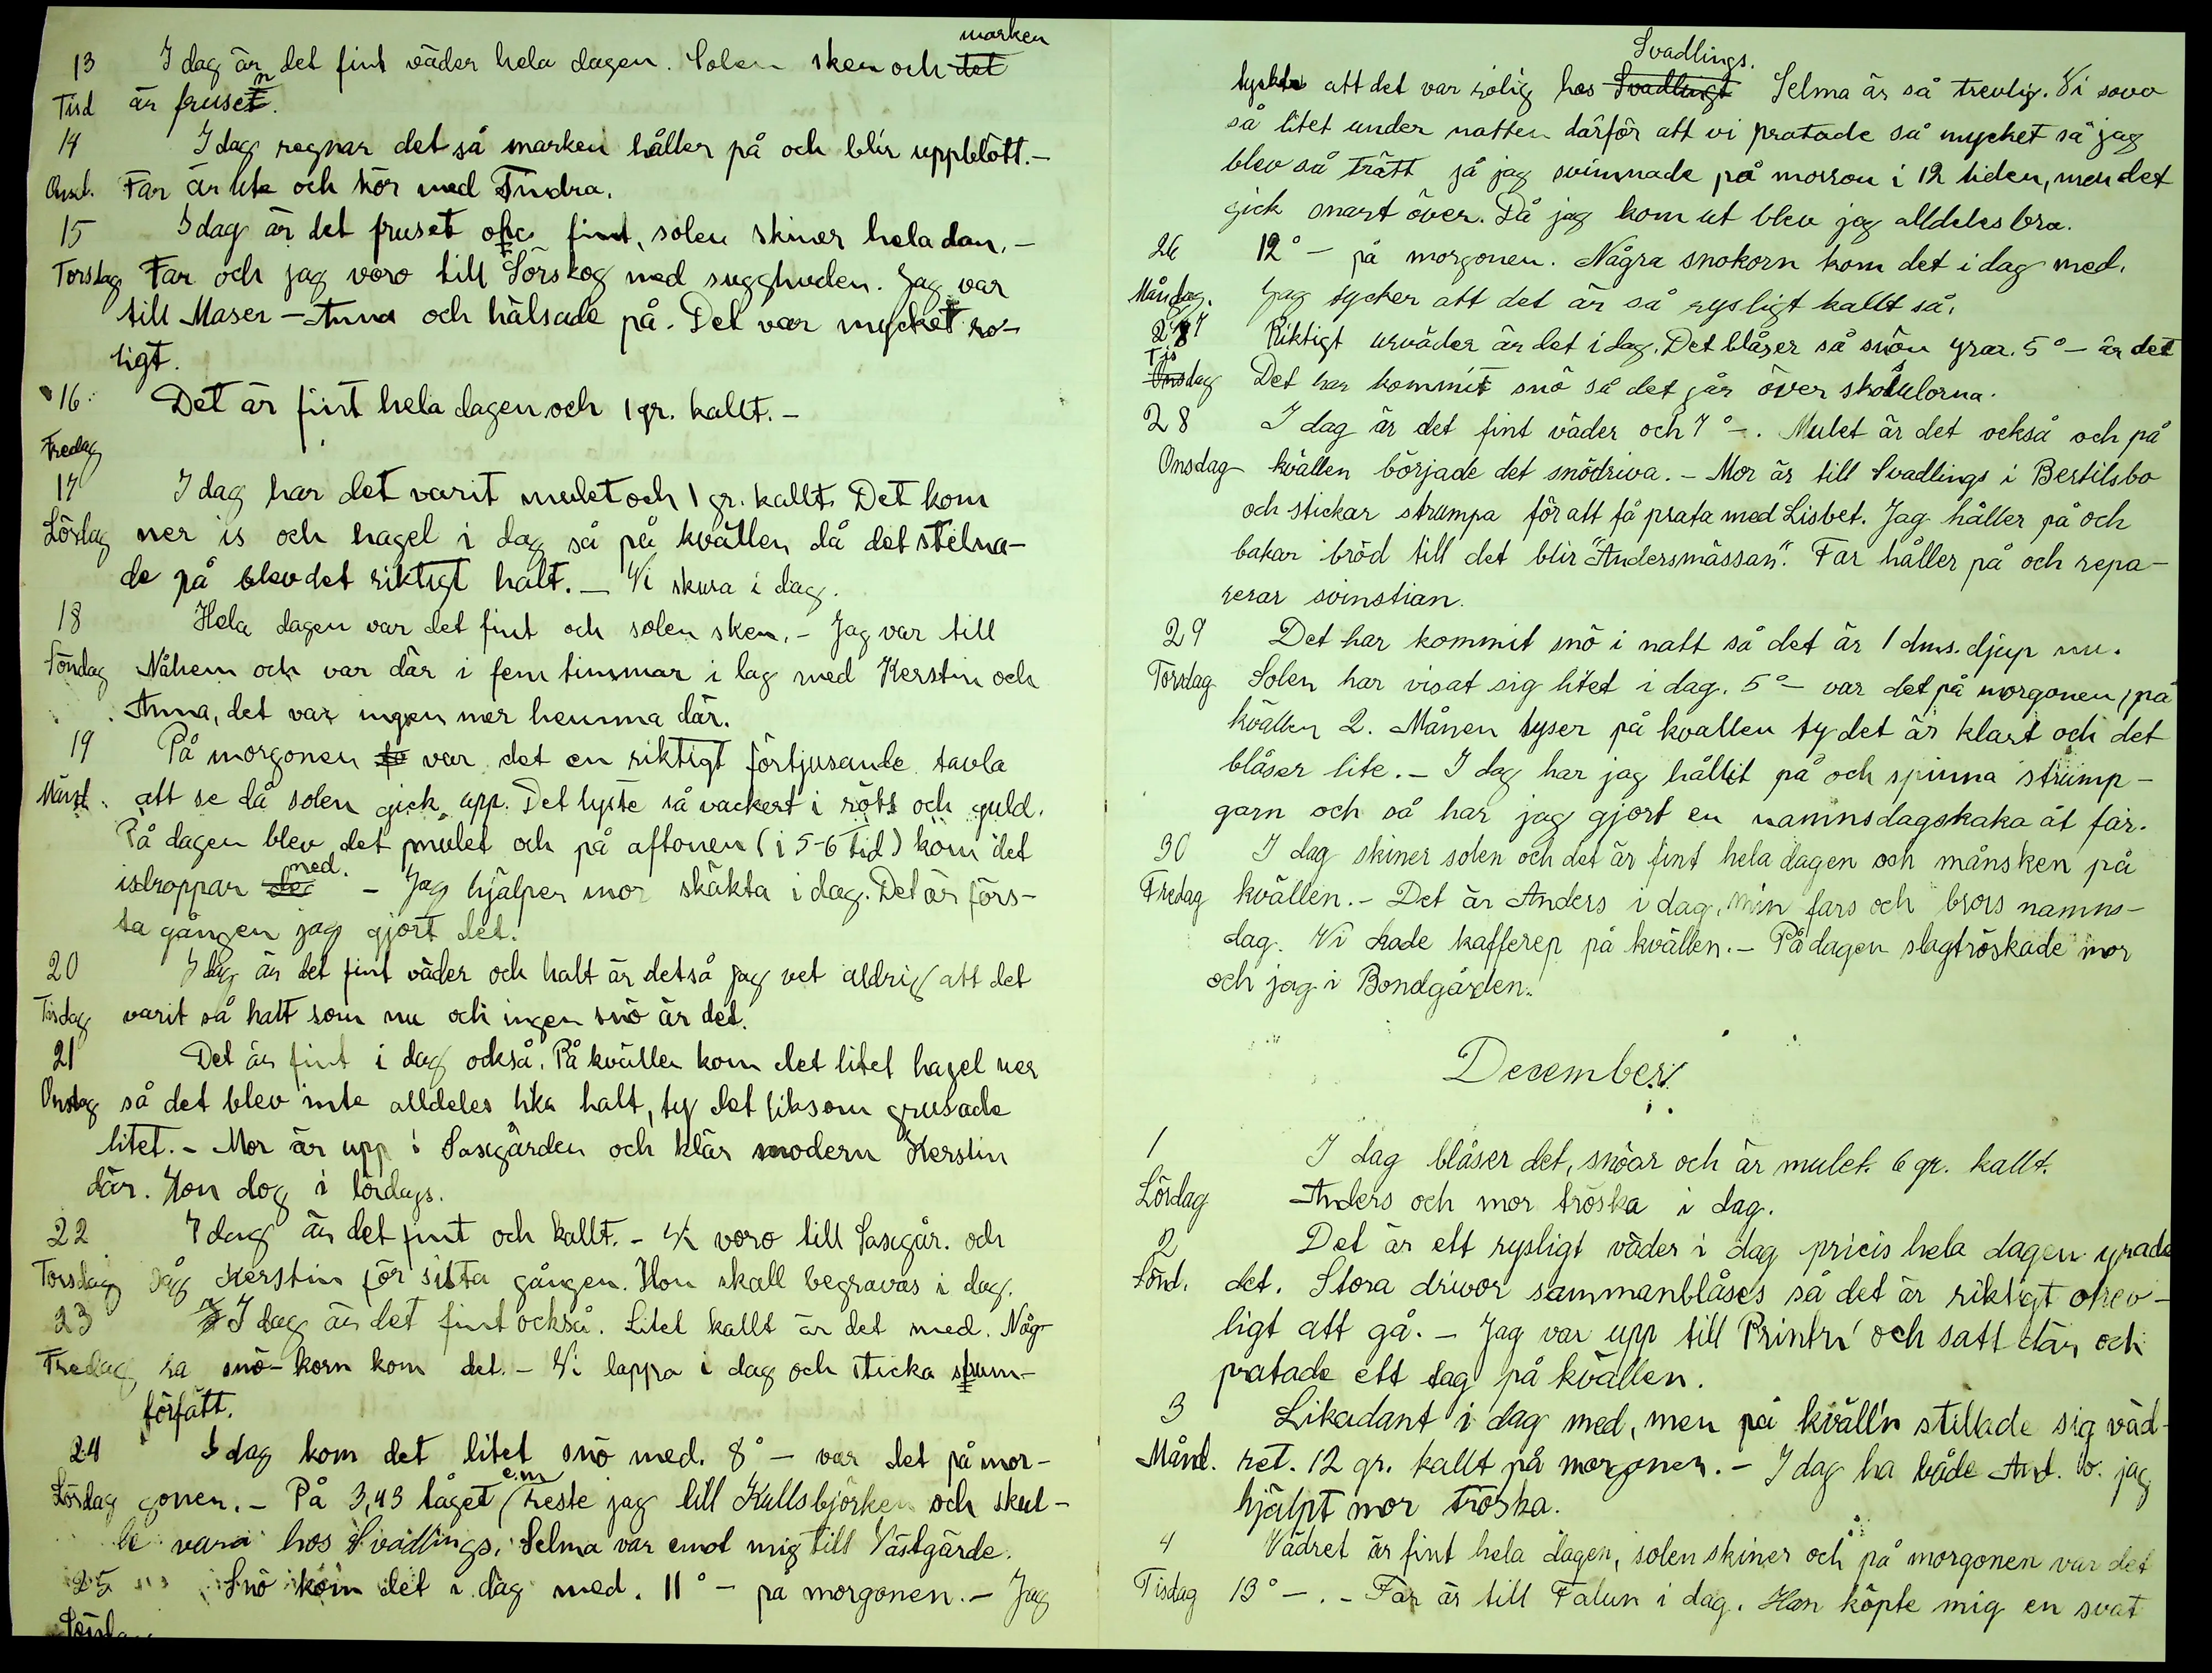 13 I dag är det fint väder hela dagen. Solen sken och det marken
Tisd är frusen.
14 I dag regnar det så marken håller på och blir uppblött.-
Onsd. Far är ute och kör med Tindra.
15 I dag är det fruset och fint, solen skiner hela dan.-
Torsdag Far och jag voro till Sörskog med sugghuden. Jag var
till Maser-Anna och hälsade på. Det var mycket ro-
ligt.
16 Det är fint hela dagen och 1 gr. kallt.-
Fredag
17 I dag har det varit mulet och 1 gr. kallt. Det kom
Lördag ner is och hagel i dag så på kvällen då det stelna-
de på blev det riktigt halt.- Vi skura i dag.
18 Hela dagen var det fint och solen sken.- Jag var till
Söndag Nåhem och var där i fem timmar i lag med Kerstin och
Anna, det var ingen mer hemma där.
19 På morgonen var det en riktigt förtjusande tavla
Månd. att se då solen gick upp. Det lyste så vackert i rött och guld.
På dagen blev det mulet och på aftonen (i 5-6 tid) kom det
isdroppar med. - Jag hjälper mor skäkta i dag. Det är förs-
ta gången jag gjort det.
20 I dag är det fint väder och halt är det så jag vet aldrig att det
Tisdag varit så halt som nu och ingen snö är det.
21 Det är fint i dag också. På kvällen kom det litet hagel ner
Onsdag så det blev inte alldeles lika halt, ty det liksom grusade
litet.- Mor är upp i Sasegården och klär modern Kerstin
där. Hon dog i lördags.
22 I dag är det fint och kallt.- Vi voro till Sasegår. och
Torsdag såg Kerstin för sista gången. Hon skall begravas i dag.
23 I dag är det fint också. Litet kallt är det med. Någ-
Fredag ra snö-korn kom det.- Vi lappa i dag och sticka strum-
förfätt.
24 I dag kom det litet snö med. 8° - var det på mor-
Lördag gonen.- På 3,43 tåget e.m reste jag till Kullsbjörken och skul-
le vara hos Svadlings. Selma var emot mig till Västgärde.
25 Snö kom det i dag med. 11° - på morgonen.- Jag
Söndag
tyckte att det var rolig hos Svadlingt Svadlings. Selma är så trevlig. Vi sovo
så litet under natten därför att vi pratade så mycket så jag
blev så trätt så jag svimmade på morron i 12 tiden, men det
gick snart över. Då jag kom ut blev jag alldeles bra.
26 12° - på morgonen. Några snökorn kom det i dag med.
Måndag. Jag tycker att det är så rysligt kallt så.
27 Riktigt urväder är det i dag. Det blåser så snön yrar. 5° - är det
Tisdag Det har kommit snö så det går över skosulorna.
28 I dag är det fint väder och 7° -. Mulet är det också och på
Onsdag kvällen började det snödriva.- Mor är till Svadlings i Bertilsbo
och stickar strumpa för att få prata med Lisbet. Jag håller på och
bakar bröd till det blir "Andersmässan". Far håller på och repa-
rerar svinstian.
29 Det har kommit snö i natt så det är 1 dms. djup nu.
Torsdag Solen har visat sig litet i dag. 5° - var det på morgonen, på
kvällen 2. Månen lyser på kvällen ty det är klart och det
blåser lite.- I dag har jag hållit på och spinna strump-
garn och så har jag gjort en namnsdagskaka åt far.
30 I dag skiner solen och det är fint hela dagen och månsken på
Fredag kvällen.- Det är Anders i dag, min fars och brors namns-
dag. Vi hade kafferep på kvällen.- På dagen slagtröskade mor
och jag i Bondgården.
December.
1 I dag blåser det, snöar och är mulet. 6 gr. kallt.
Lördag Anders och mor tröska i dag.
2 Det är ett rysligt väder i dag pricis hela dagen yrade
Sönd. det. Stora drivor sammanblåses så det är riktigt otrev-
ligt att gå.- Jag var upp till Printri och satt där och
pratade ett tag på kvällen.
3 Likadant i dag med, men på kväll'n stillade sig väd-
Månd. ret. 12 gr. kallt på morgonen.- I dag ha både And. o. jag
hjälpt mor tröska.
4 Vädret är fint hela dagen, solen skiner och på morgonen var det
Tisdag 13° -.- Far är till Falun i dag. Han köpte mig en svat